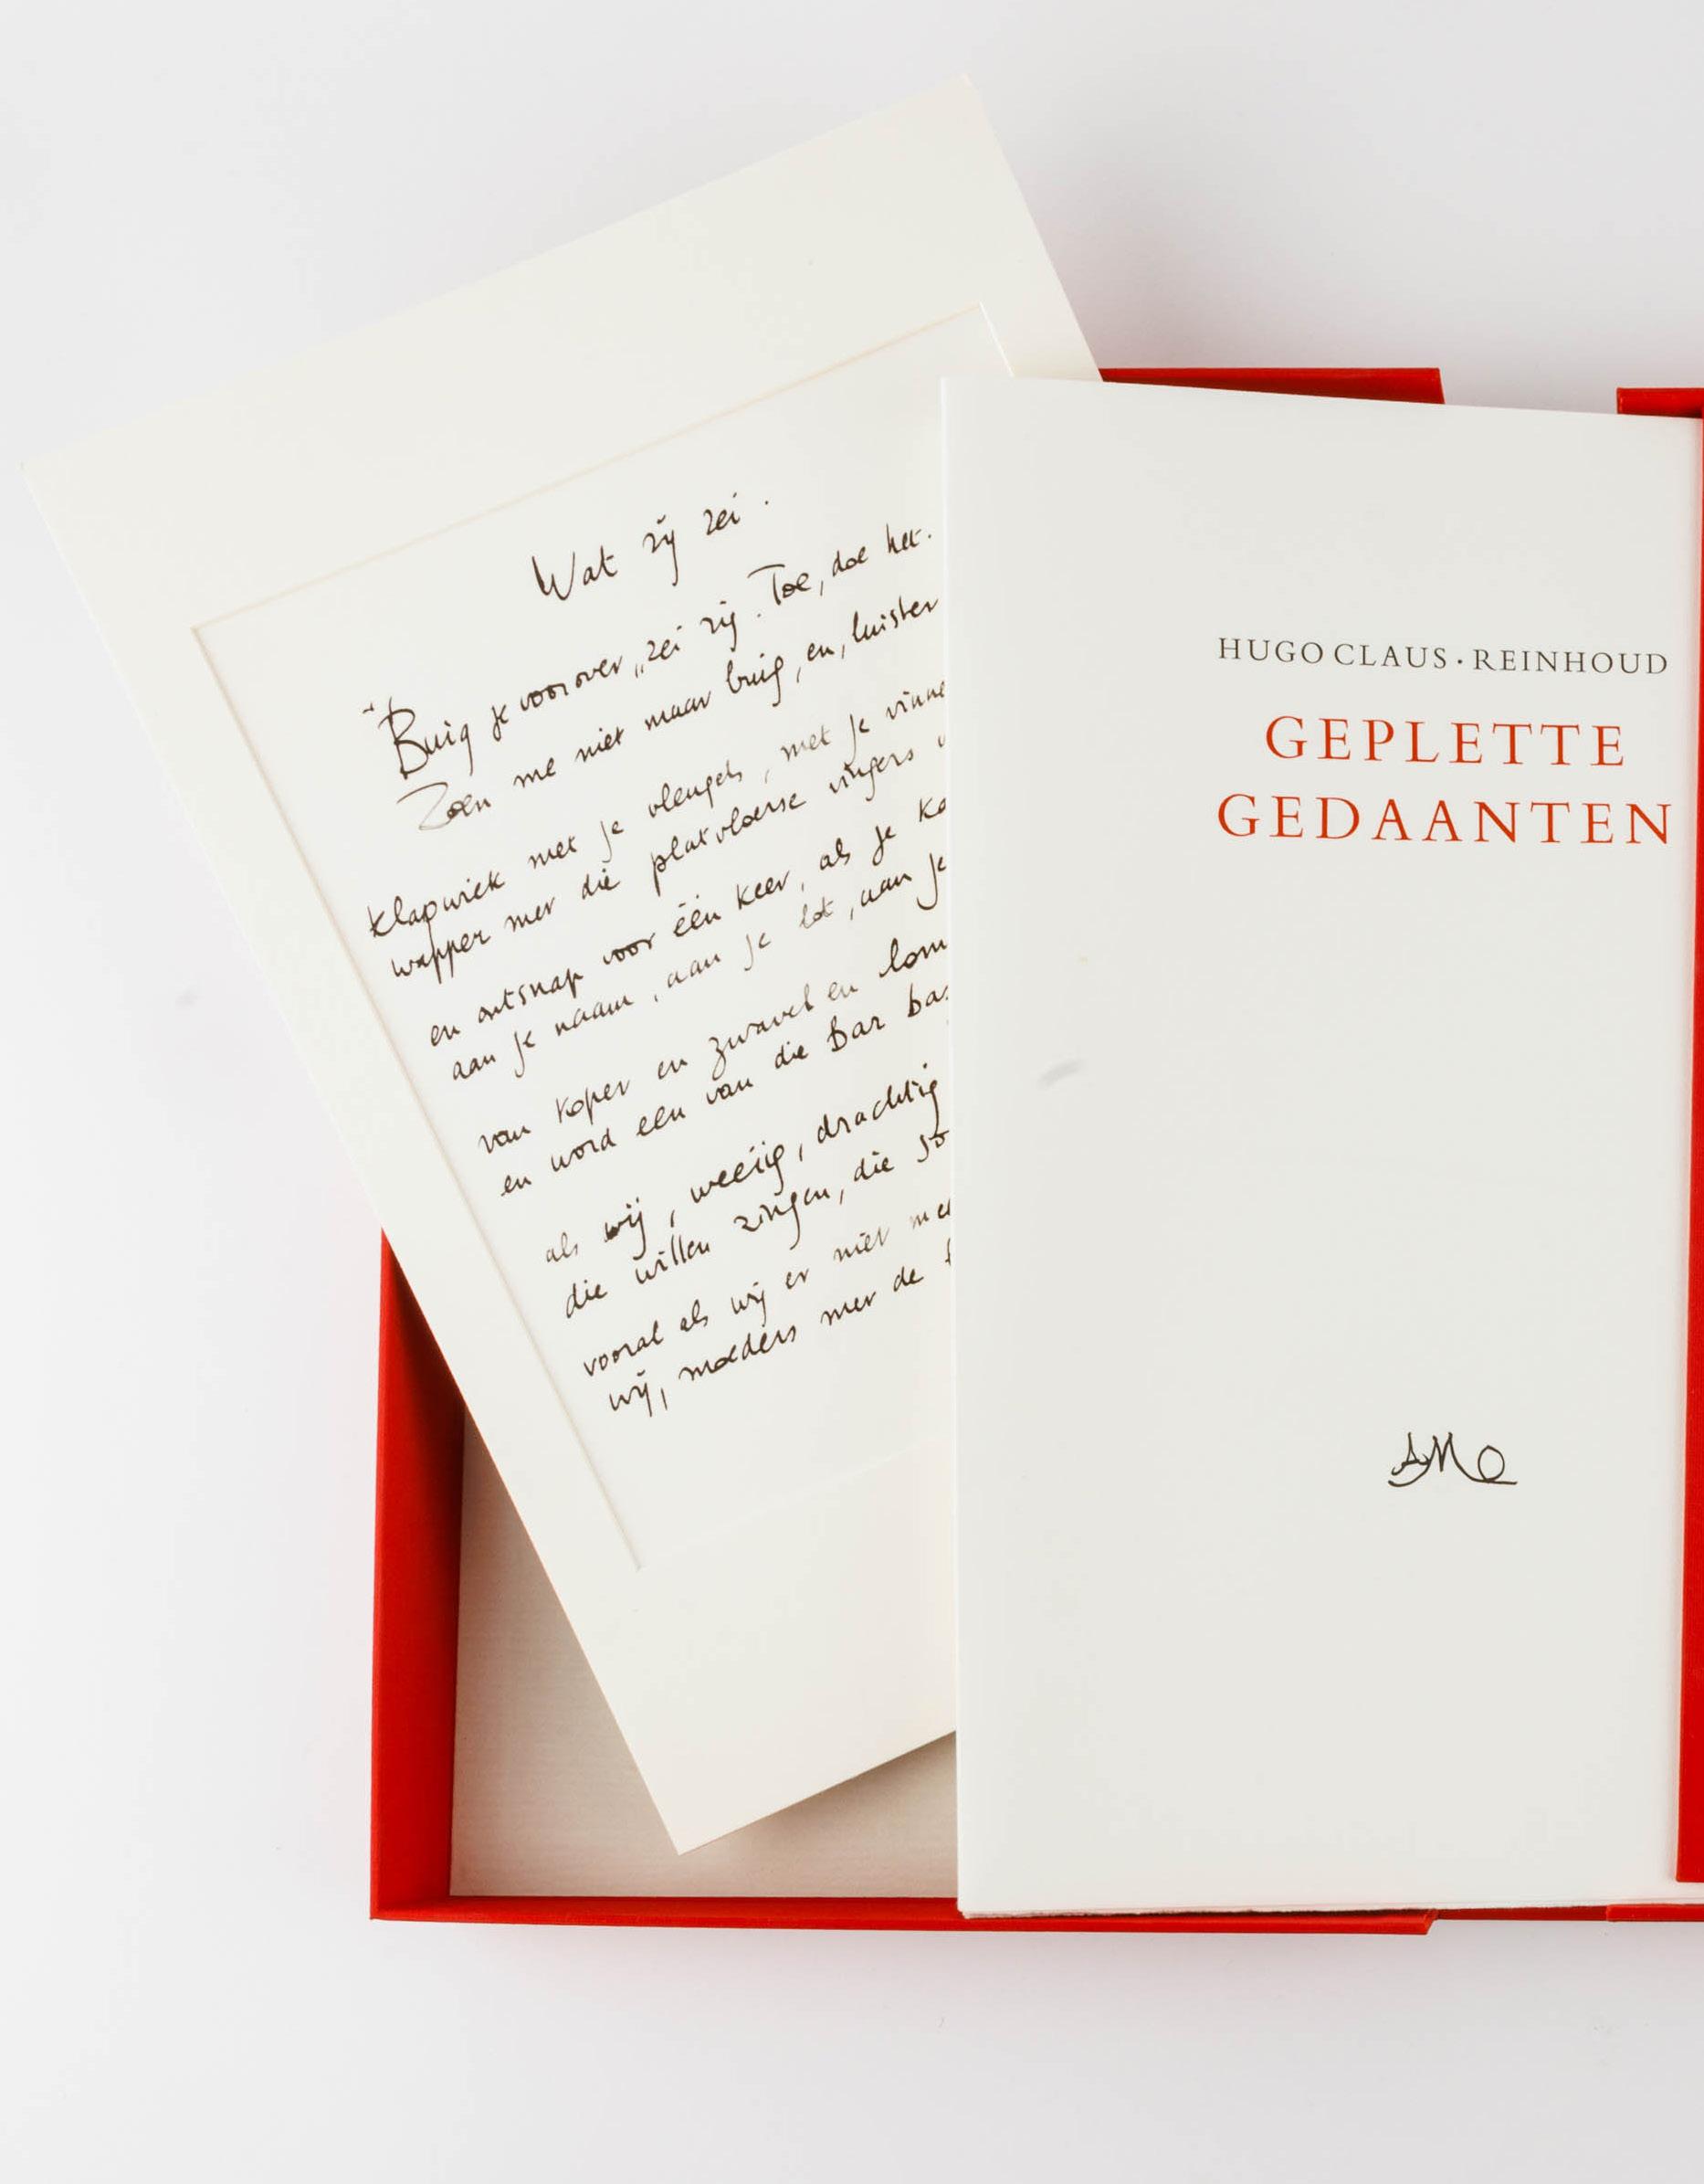 Wat zij zei.
"Buig je voorover", zei zij. Toe, doe het.
Zoen me niet maar buig, en, luister
klapwiek met je vleugels, met je vinne
wapper met die platvloerse vingers v
en ontsnap voor één keer, als je ka
aan je naam, aan je lot, aan je
van koper en zwavel en lom
en word een van die Bar ba
als wij, weeïig, drachtig
die willen zingen, die so
vooral als wij er niet me
wij, moeders met de
HUGO CLAUS · REINHOUD
GEPLETTE
GEDAANTEN
AMO